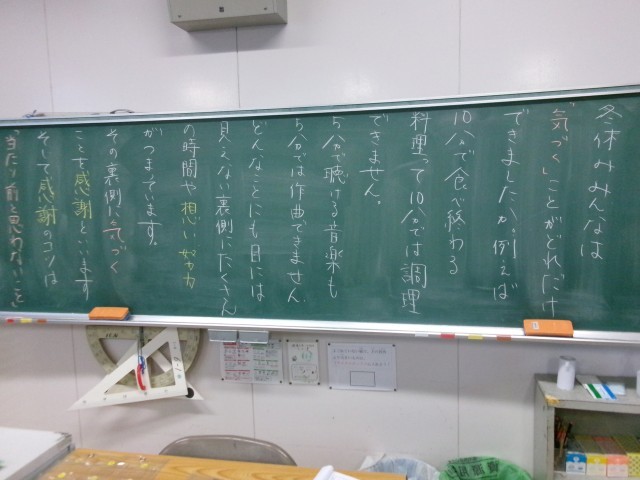 冬休みみんなは
「気づく」ことがどれだけ
できましたか。例えば
10分で食べ終わる
料理って10分では調理
できません。
5分で聴ける音楽も
5分では作曲できません。
どんなことにも目には
見えない裏側にたくさん
の時間や想い努力
がつまっています。
その裏側に気づく
ことを感謝といいます
そして感謝のコツは
「当たり前と思わないこと」